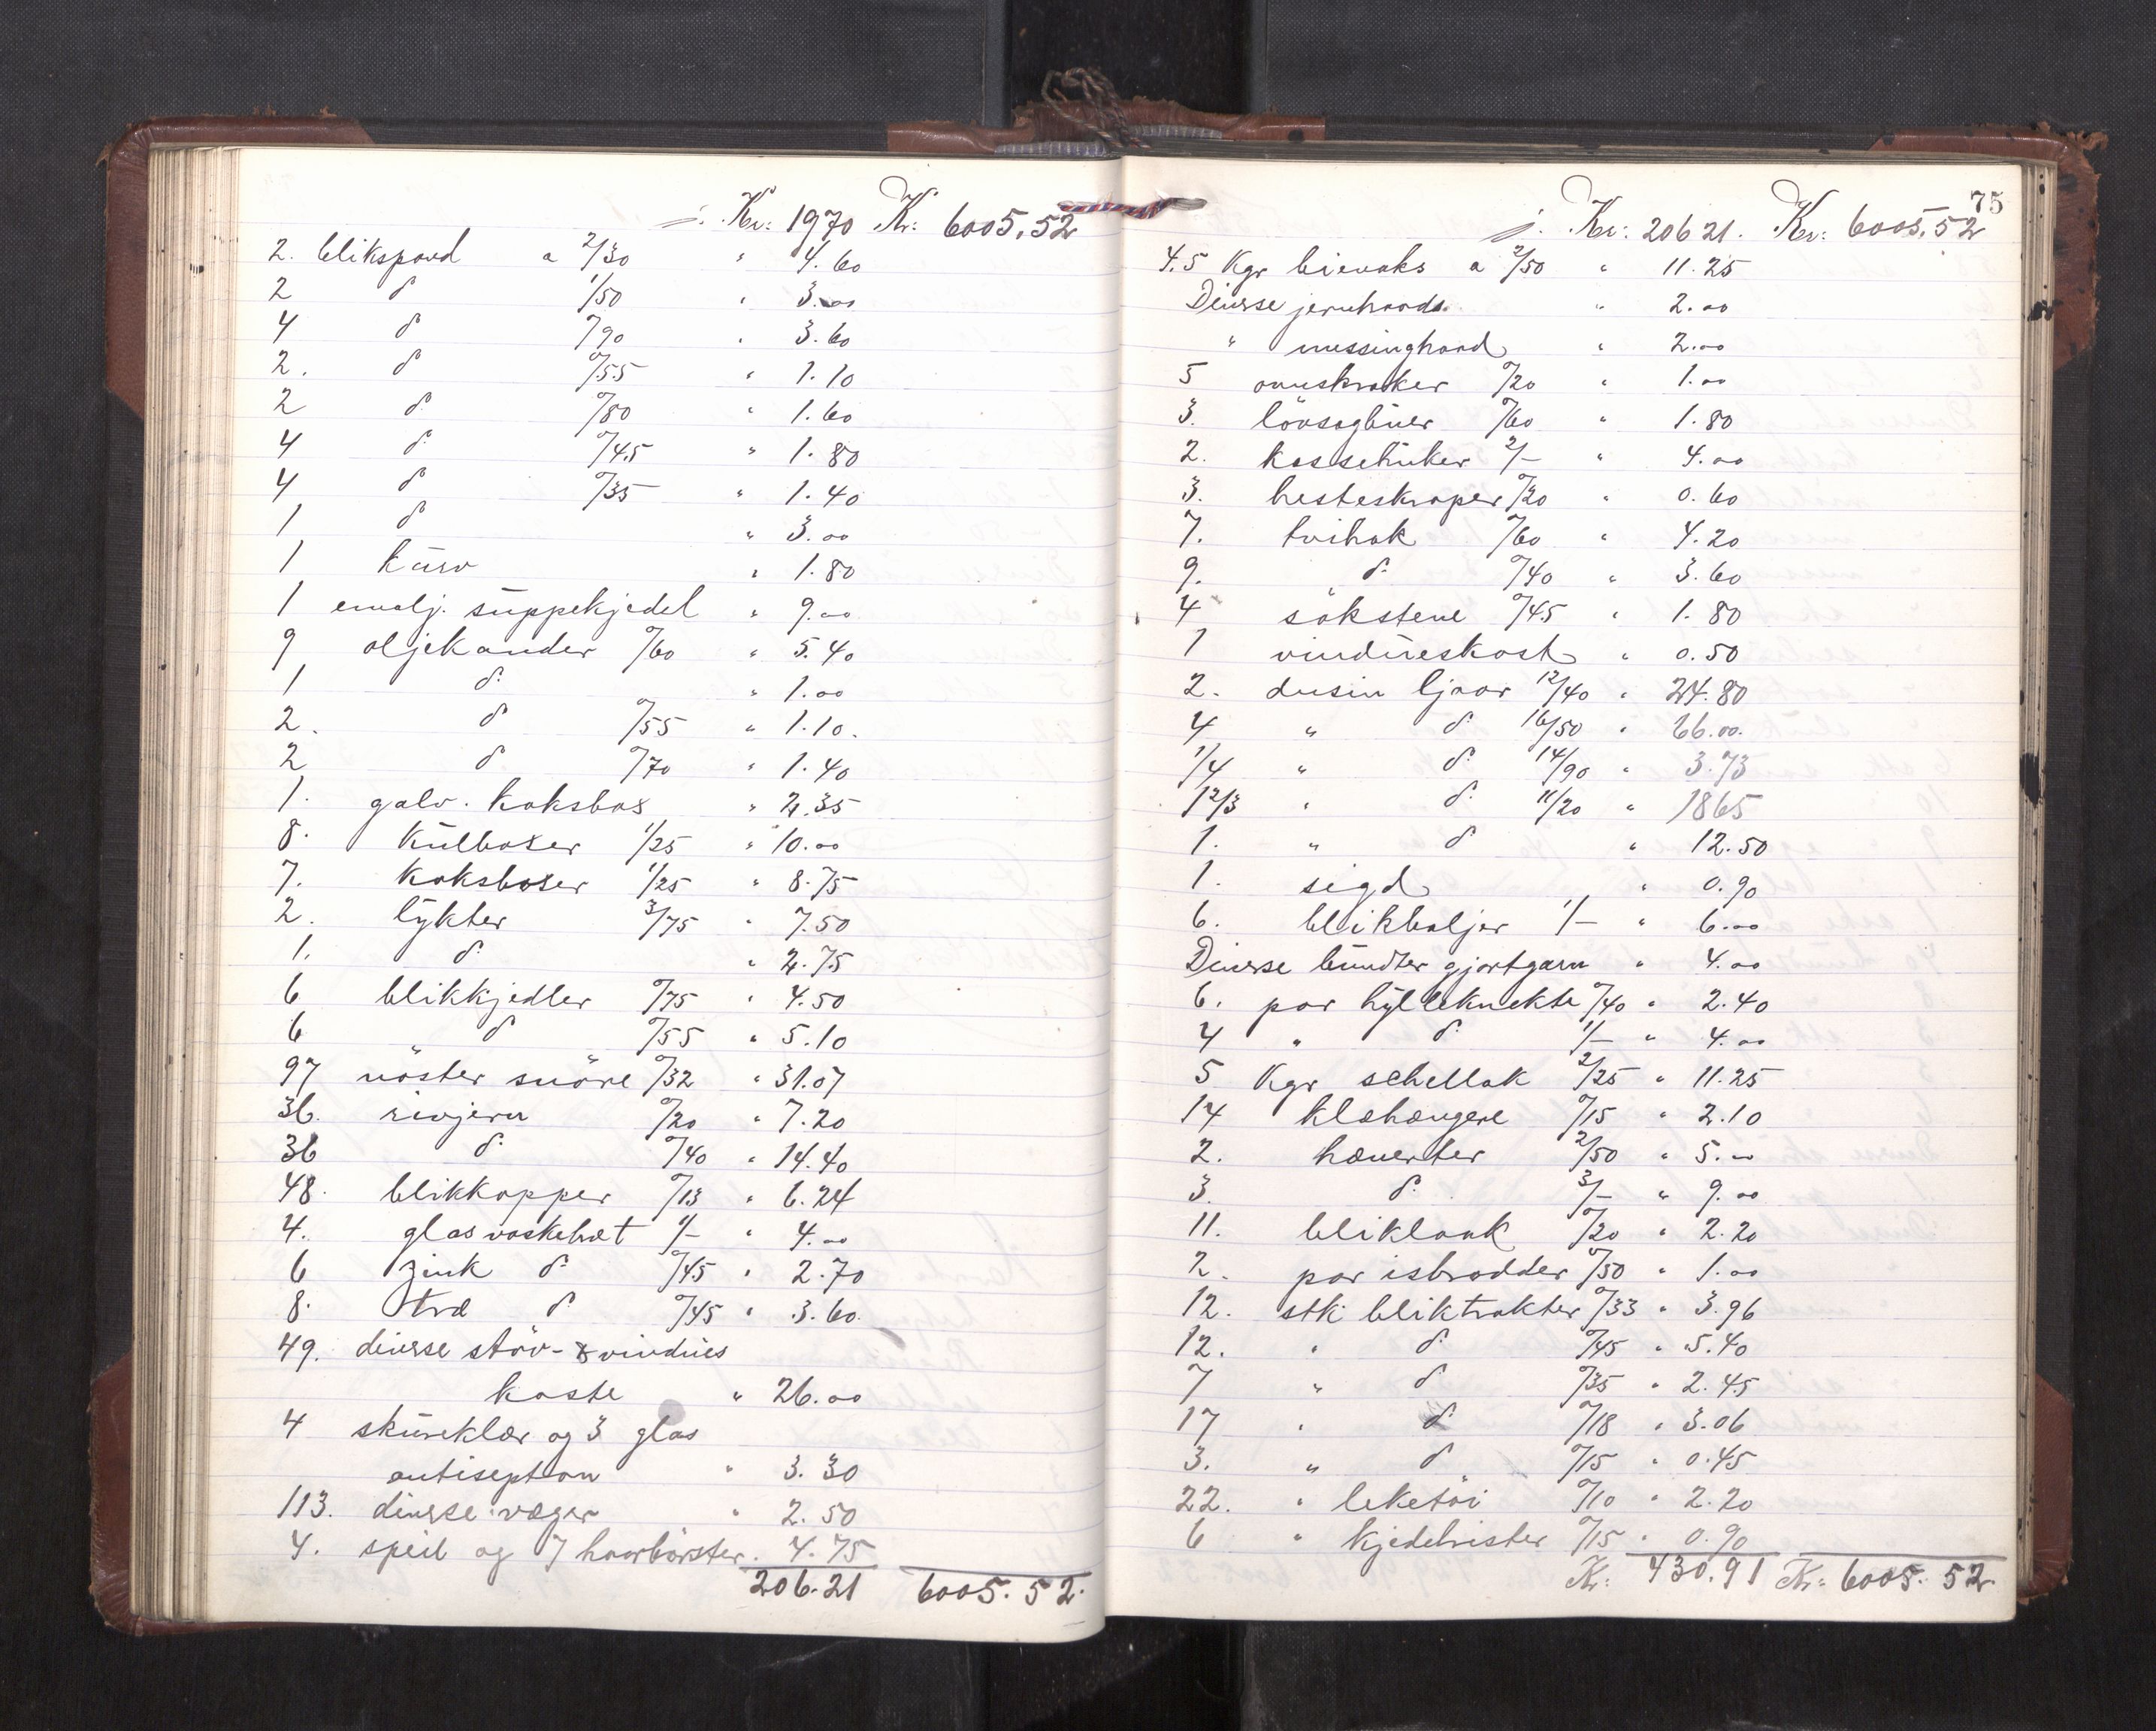 j. Kr: 1970 Kr: 6005,52
2. blikspand a 2/30 " 4.60
2 do 1/50 " 3.00
4 do 0/90 " 3.60
2. do 0/55 " 1.10
2 do 0/80 " 1.60
4 do 0/45 " 1.80
4 do 0/35 " 1.40
1 do " 3.00
1 kurv " 1.80
1 emalj. suppekjedel " 9.00
9 oljekander 0/60 " 5.40
1 do " 1.00
2. do 0/55 " 1.10.
2 do 0/70 " 1.40
1. galv. koksbox " 2.35
8. kulboxer 1/25 " 10.00
7. koksboxer 1/25 " 8.75
2. lykter 3/75 " 7.50
1. do " 2.75
6 blikkjedler 0/75 " 4.50
6 " do 0/55 " 5.10
97 nöster snöre 0/32 " 31.07
36. rivjern 0/20 " 7.20
36 do 0/40 " 14.40
48. blikkopper 0/13 " 6.24
4. glas vaskebræt 1/- " 4.00
6 zink do 0/45 " 2.70
8. træ do 0/45 " 3.60.
49. diverse stöv- & vindues
koste " 26.00
4 skureklær og 3 glas
antisepton " 3.30
113. diverse væger " 2.50
4. speil og 7 haarbörster. 4.75
206.21 6005.52.
75
j. Kr: 20621. Kr: 6005,52
4.5 Kgr bievaks a 2/50 " 11.25
Diverse jerntraad " 2.00
" messingtraad " 2.00
5 ovnskraker 0/20 " 1.00
3. lövsagbuer 0/60 " 1.80
2. 2/- " 4.00
3. hesteskraper 0/20 " 0.60
7. tvihak 0/60 " 4.20
9. do 0/40 " 3.60
4 sökstene 0/45 " 1.80
1 vindueskost " 0.50
2. dusin ljaar 12/40 " 24.80
4 " do 16/50 " 66.00.
1/4 " do 14/90 " 3.73
1 2/3 " do 11/20 " 1865
1. " do " 12.50
1. sigd " 0.90
6. blikbaljer 1/- " 6.00
Diverse bundter gjortgarn " 4.00
6. par hylleknekte 0/40 " 2.40
4 " do 1/- " 4.00
5 Kgr schellak 2/25 " 11.25
14 klæhængere 0/15 " 2.10
2. hæverter 2/50 " 5.00
3. do 3/- " 9.00
11. bliklaak 0/20 " 2.20
2. par isbrodder 0/50 " 1.00
12. stk. bliktrakter 0/33 " 3.96
12. " do 0/45 " 5.40
7 " do 0/35 " 2.45
17 " do 0/18 " 3.06
3. " do 0/15 " 0.45
22. " leketöi 0/10 " 2.20
6 " kjedelrister 0/15 " 0.90
Kr: 430.91 Kr: 6005.52.